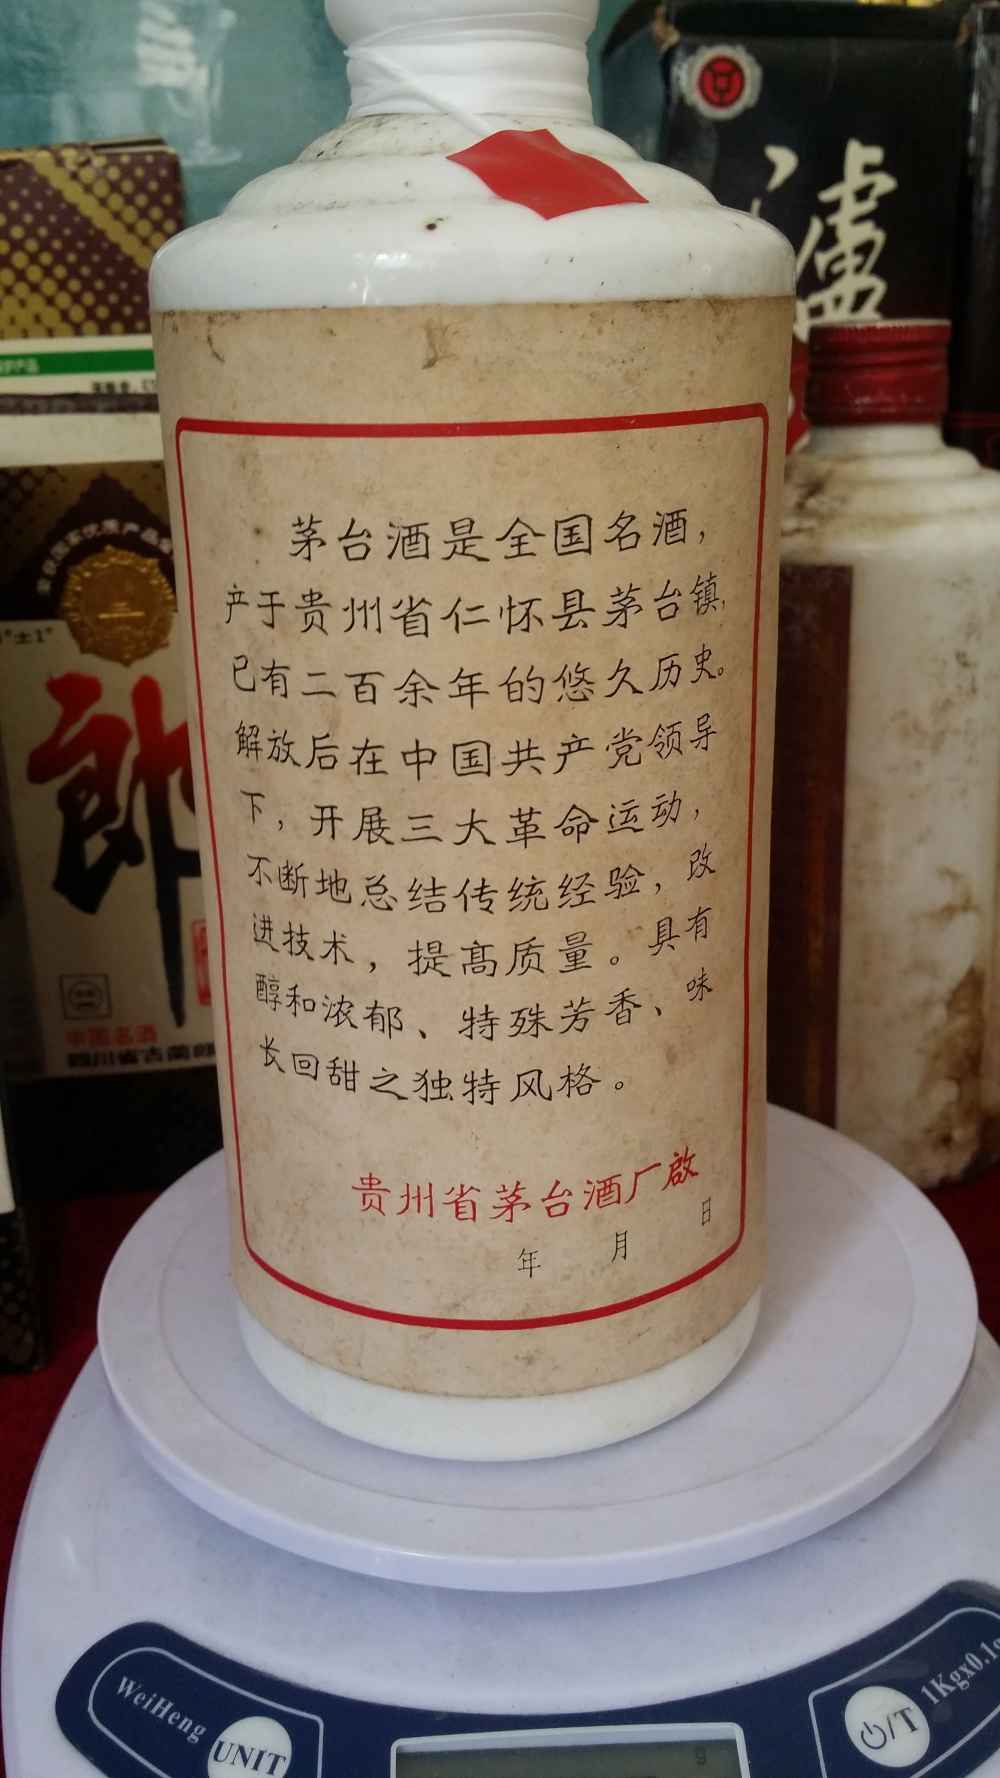 茅台酒是全国名酒，
产于贵州省仁怀县茅台镇，
已有二百余年的悠久历史。
解放后在中国共产党领导
下，开展三大革命运动，
不断地总结传统经验，改
进技术，提高质量。具有
醇和浓郁、特殊芳香、味
长回甜之独特风格。
贵州省茅台酒厂啟
年 月 日
瀘
郎
中国名酒
WeiHeng
UNIT
/T
1Kgx0.1g
g